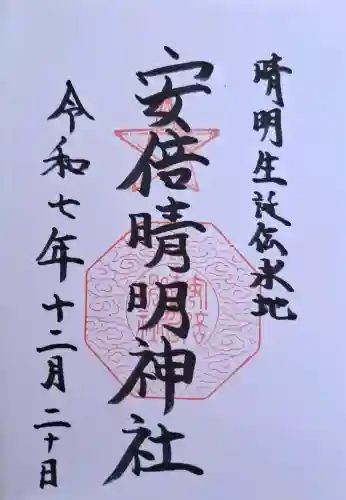 晴明生誕伝承地
安倍晴明神社
令和七年十二月二十日